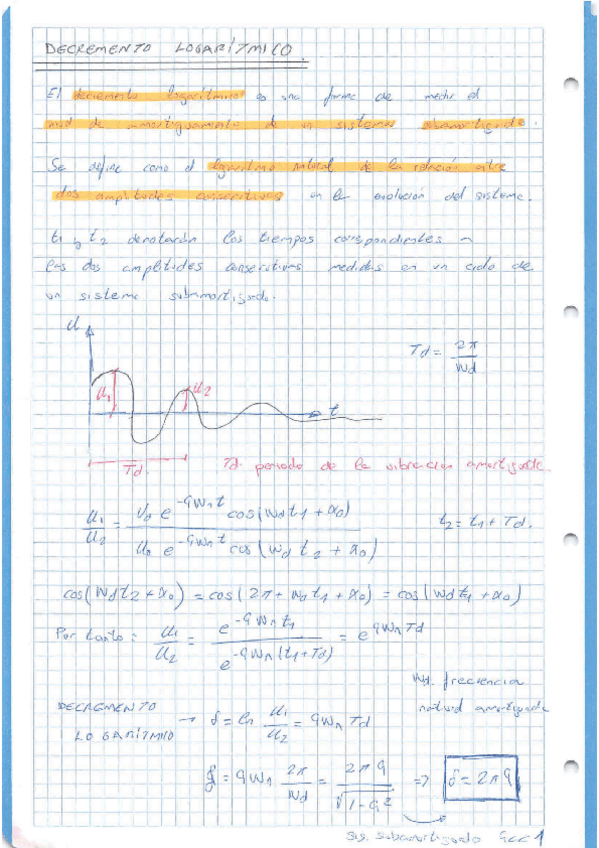 DECREMENTO LOGARÍTMICO.
El decremento logarítmico es una forma de medir el
nivel de amortiguamiento de un sistema subamortiguado.
Se define como el logaritmo natural de la relación entre
dos amplitudes consecutivas en la evolución del sistema.
t1 y t2 denotarán los tiempos correspondientes a
las dos amplitudes consecutivas medidas en un ciclo de
un sistema subamortiguado.
u
Td = 2π / Wd
u1 u2 t
Td. Td. periodo de la vibración amortiguada
u1/u2 = u0 e^-ςWnt cos(Wdt1 + α0) / u0 e^-ςWnt cos(Wd t2 + α0) t2 = t1 + Td.
cos(Wdt2 + α0) = cos(2π + Wdt1 + α0) = cos(Wdt1 + α0)
Por tanto: u1/u2 = e^-ςWnt1 / e^-ςWn(t1+Td) = e^ςWnTd
Wd. frecuencia
natural amortiguada
DECREMENTO
LOGARÍTMICO → δ = ln u1/u2 = ςWnTd
δ = ςWn 2π/Wd = 2πς/√1-ς² => δ = 2πς
Sis. subamortiguado ς<<1